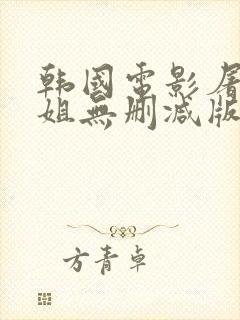 韩國電影屠
姐無删减版
方青卓